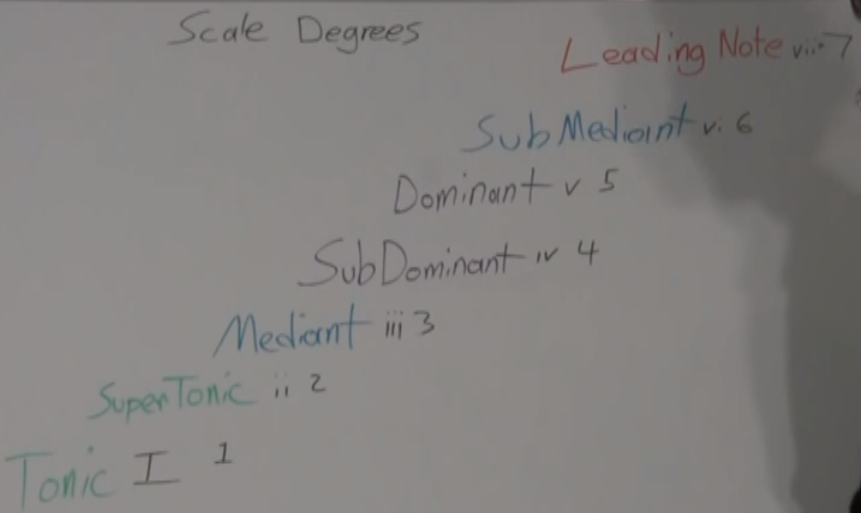 Scale Degrees
Leading Note vii 7
SubMediant vi 6
Dominant v 5
SubDominant iv 4
Mediant iii 3
SuperTonic ii 2
Tonic I 1